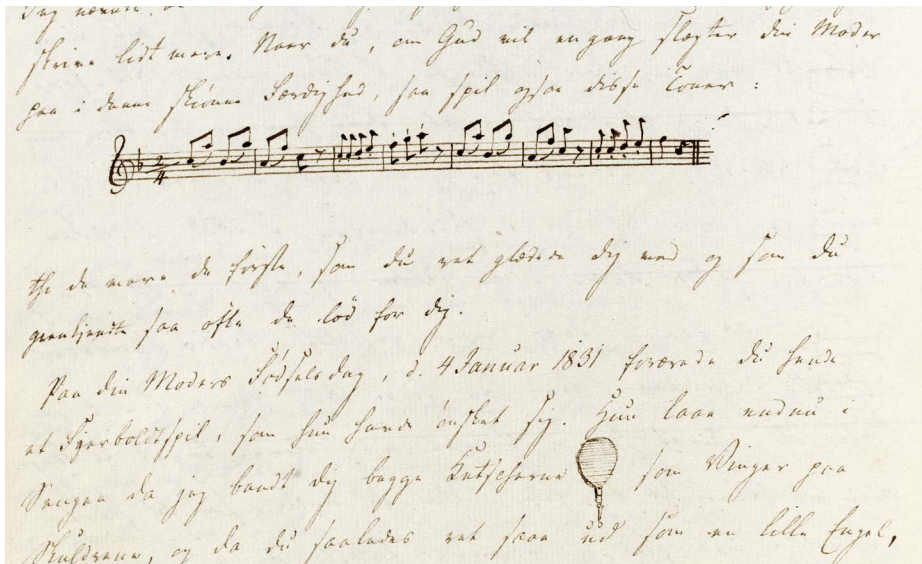 skrive lidt mere. Naar du, om Gud vil engang slægter din Moder
paa i denne skiønne Færdighed, saa spil ogsaa disse Toner:
2/4
thi de vare de første, som du ret glædede dig ved og som du
gienkjendte saa ofte de lød for dig.
Paa din Moders Fødselsdag, d. 4 Januar 1831 forærede du hende
et Fjerboldtspil, som hun havde ønsket sig. Hun laae endnu i
Sengen da jeg bandt dig begge Ketscherne som Vinger paa
Skuldrene, og da du saaledes ret saae ud som en lille Engel,